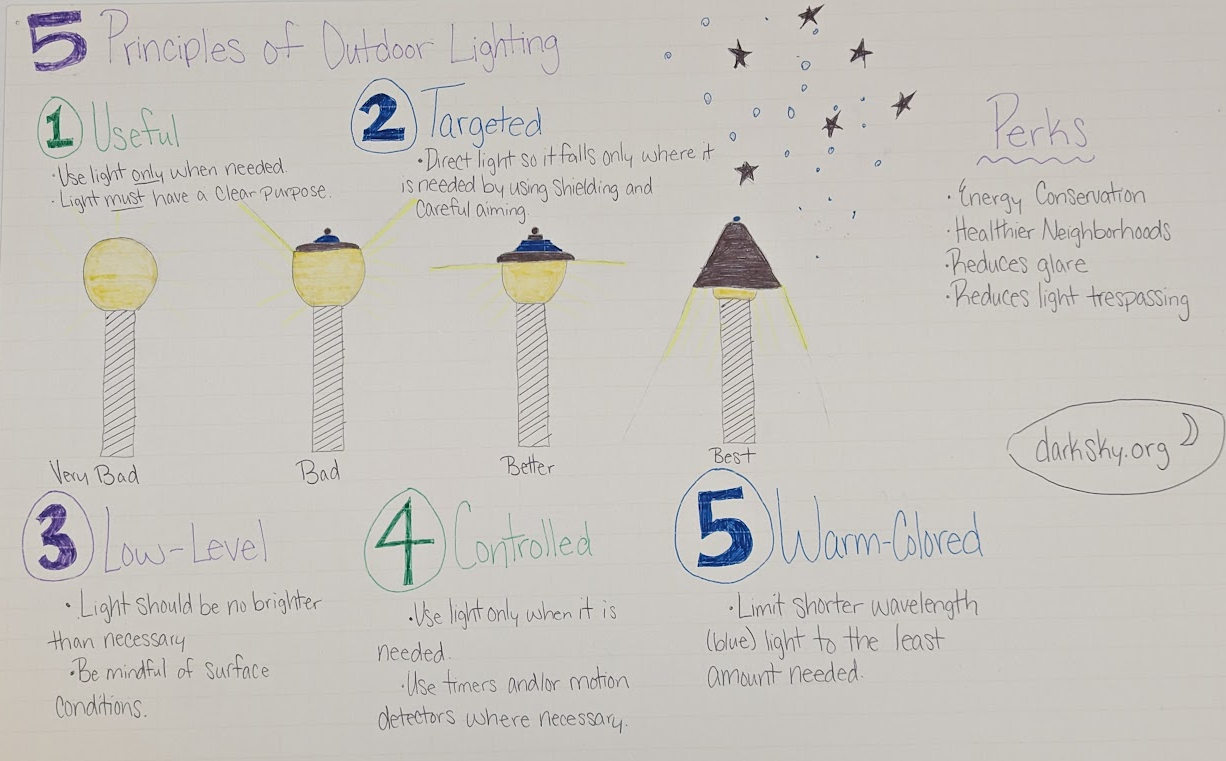 5 Principles of Outdoor Lighting
1 Useful
· Use light only when needed.
· Light must have a clear purpose.
2 Targeted
· Direct light so it falls only where it
is needed by using shielding and
careful aiming.
Perks
· Energy Conservation
· Healthier Neighborhoods
· Reduces glare
· Reduces light trespassing
Very Bad
Bad
Better
Best
darksky.org
3 Low-Level
· Light should be no brighter
than necessary
· Be mindful of surface
conditions.
4 Controlled
· Use light only when it is
needed.
· Use timers and/or motion
detectors where necessary.
5 Warm-Colored
· Limit shorter wavelength
(blue) light to the least
amount needed.